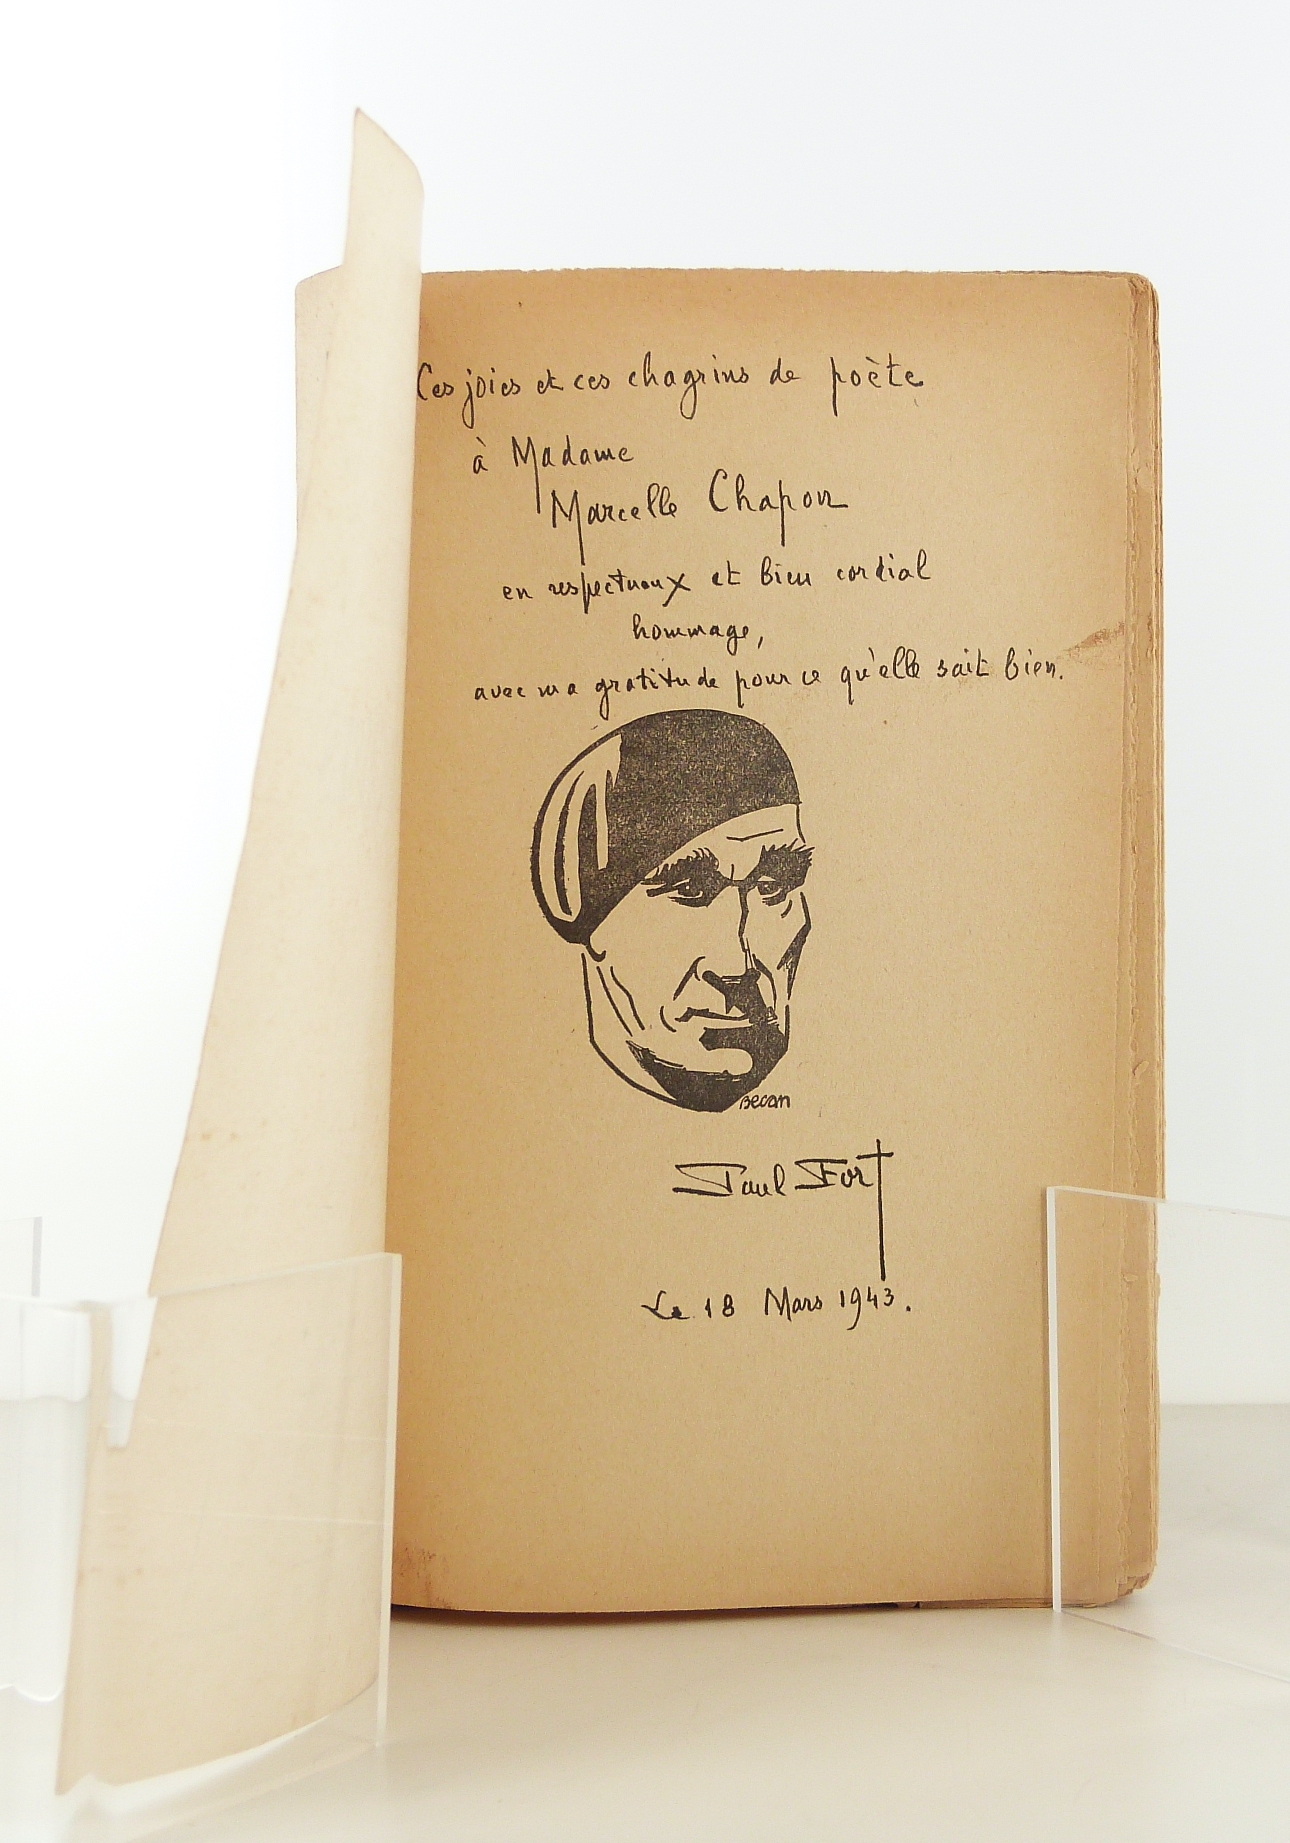 Ces joies et ces chagrins de poète
à Madame
Marcelle Chapon
en respectueux et bien cordial
hommage,
avec ma gratitude pour ce qu'elle sait bien.
Becan
Paul Fort
Le 18 Mars 1943.